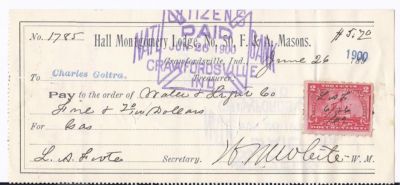 No. 1785 Hall Montgomery Lodge, No. 50, F. & A. Masons. $5.70
Crawfordsville, Ind., June 26 1900
To Charles Goltra, Treasurer
Pay to the order of Water & Light Co
Five & 70/100 Dollars
For Gas
L. A. Foote Secretary. W. M.
CITIZENS
NAT'L BANK
PAID
JUN 26 1900
CRAWFORDSVILLE
IND.
2 2